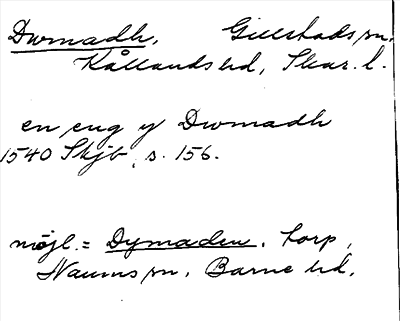 Dwmadh. Gillstads sn.
Kållands hd, Skar. l.
en eng y Dwmadh
1540 Skjb, s. 156.
möjl. = Dymaden. torp,
Naums sn. Barne hd.